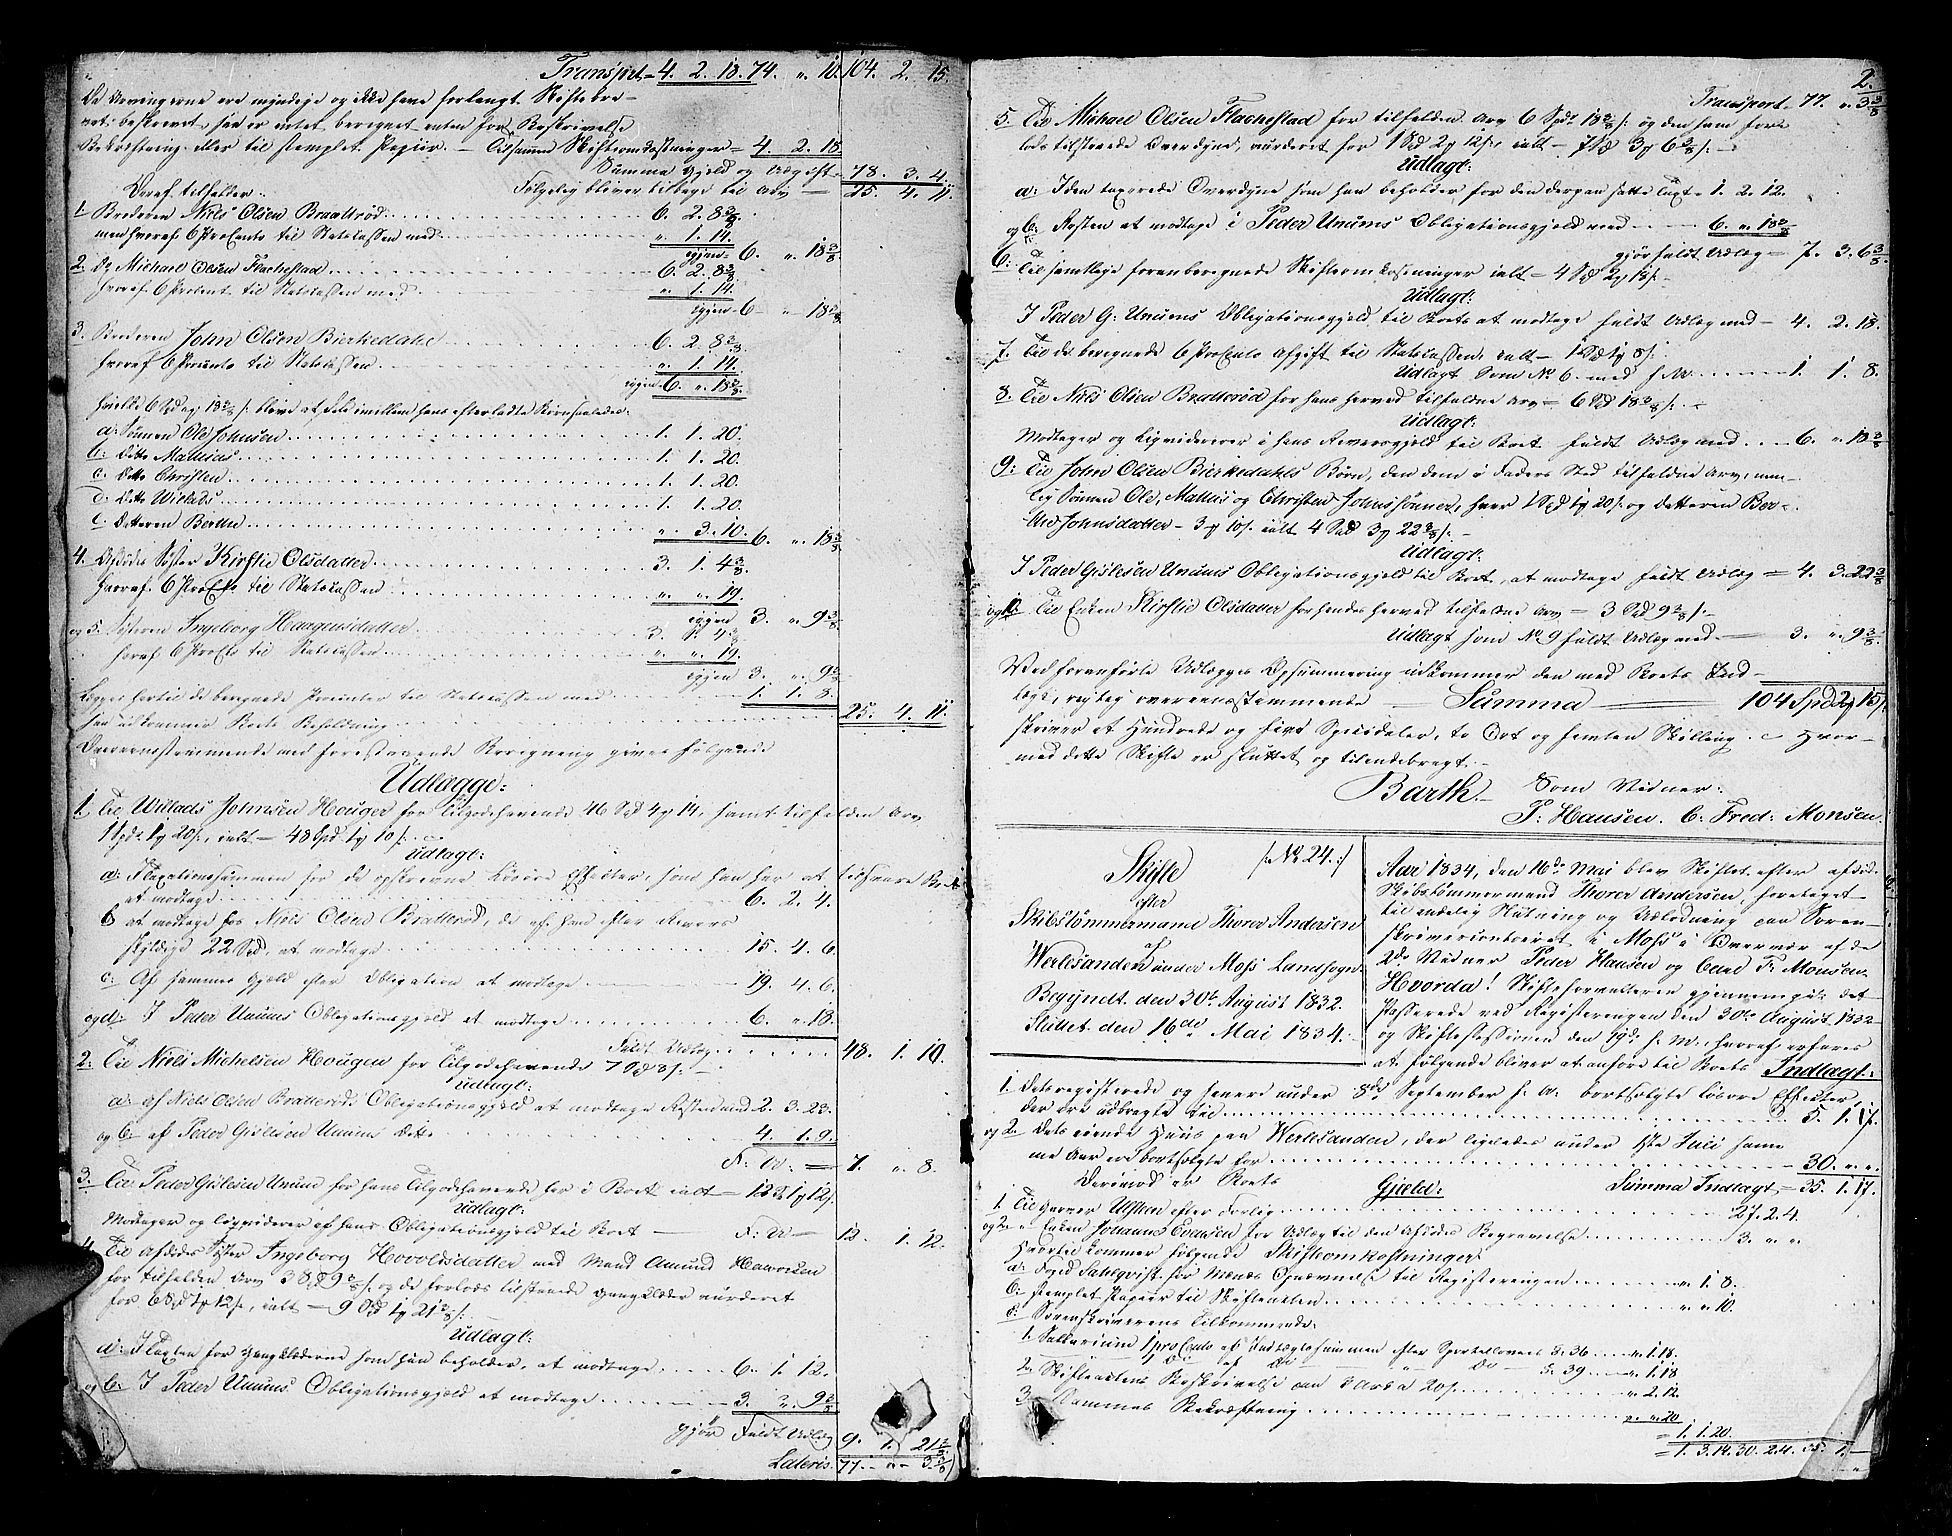 Transport - 4. 2. 18. 74. " 10. 104. 2. 15.
Da Arvingerne ere myndige og ikke have forlangt Skiftebre-
vet beskrevet, saa er intet beregnet enten for Beskrivelse
Bekræftning eller til stemplet Papiir. - Tilsammen Skifteomkostninger - 4. 2. 18
Summa Gjeld og Udgift - 78. 3. 4.
Deraf tilfalder: Følgelig bliver tilbage til Arv - 25. 4. 11.
1. Broderen Niels Olsen Brattrød 6. 2. 8 3/8
men hvoraf 6 ProCento til Statscassen med ". 1. 14.
igjen 6. " 18 3/8
2. Do Michael Olsen Flachestad 6. 2. 8 3/8
hvoraf 6 Procent til Statscassen med ". 1. 14.
igjen 6 - " 18 3/8
3. Broderen John Olsen Bierkedahl 6. 2. 8 3/8
hvoraf 6 Procento til Statscassen ". 1. 14.
igjen 6. " 18 3/8
hvilke 6 Spd 18 3/8 s. blive at dele imellem hans efterladte Børn saaledes:
a: Sønnen Ole Johnsen 1. 1. 20.
b: Ditto Mathias 1. 1. 20.
c: Ditto Christen 1. 1. 20.
d: Ditto Willads 1. 1. 20
e. Datteren Berthe ". 3. 10. 6. " 18 3/8
4. Afdødes Søster Kirstie Olsdatter 3. 1. 4 3/8
hvoraf 6 ProCto til Statscassen ". " 19.
igjen 3. " 9 3/8
og 5. Søsteren Ingeborg Haagensdatter 3. 1. 4 3/8
hvoraf 6 ProCto til Statscassen ". " 19.
igjen 3. " 9 3/8
Lægges hertil de beregnede Procenter til Statscassen med 1. 1. 8.
saa udkommer Boets Beholdning 25. 4. 11.
Overeensstemmende med forestaaende Beregning gives følgende
Udlægge:
1. Til Willads Johnsen Houger for Tilgodehavende 46 Spd 4 # 14, samt tilfalden Arv
1 Spd 1 # 20 s, ialt - 48 Spd 1 # 10 s.
Udlagt:
a: I Taxationssummen for de opskrevne Løsøre Effecter, som han har at tilsvare Boet
at modtage 6. 2. 4.
b at modtage hos Niels Olsen Bratterød, de af ham efter Revers
skyldige 22 Spd, at modtage 15. 4. 6.
c: Af sammes Gjeld efter Obligation at modtage 19. 4. 6.
og d: I Peder Unums Obligationsgjeld at modtage 6. " 18.
Fuldt Udlæg 48. 1. 10.
2. Til Niels Michelsen Hougen for Tilgodehavende 7 Spd 8 s. -
Udlagt:
a: af Niels Olsen Bratterøds Obligationsgjeld at modtage Resten med 2. 3. 23.
og b: af Peder Gislesen Unums ditto 4. 1. 9.
F: U: = 7. " 8.
3. Til Peder Gislesen Unum for hans Tilgodehavende her i Boet ialt - 12 Spd 1 # 12 s.
Udlagt:
Modtager og liqviderer af hans Obligationsgjeld til Boet - F: U - 12. 1. 12.
4. Til Afdødes Søster Ingeborg Hovoldsdatter med Mand Amund Haworsen
for tilfalden Arv 3 Spd 9 3/8 s. og de forlods tilstaaede Gangklæder vurderet
for 6 Spd 1 # 12 s, ialt - 9 Spd 1 # 21 3/8 s.
Udlagt:
a: I Taxten for Gangklæderne som hun beholder, at modtage 6. 1. 12.
og b: I Peder Unums Obligationsgjeld at modtage 3. " 9 3/8
gjør Fuldt Udlæg 9. 1. 21 3/8
Lateris. 77. - " - 3 3/8
2.
Transport - 77. " 3 3/8
5. Til Michael Olsen Flachestad for tilfalden Arv 6 Spd 18 3/8 s. og den ham for-
lods tilstaaede Overdyne, vurderet for 1 Spd 2 # 12 s, ialt - 7 Spd 3 # 6 3/8 s. -
Udlagt:
a: I den taxerede Overdyne som han beholder for den derpaa satte Taxt - 1. 2. 12.
og b: Resten at modtage i Peder Unums Obligationsgjeld med - 6. " 18 3/8
gjør fuldt Udlæg - 7. 3. 6 3/8
6. Til samtlige foranberegnede Skifteomkostninger ialt - 4 Spd 2 # 18 s. -
Udlagt:
I Peder G: Unums Obligationsgjeld til Boet at modtage fuldt Udlæg med - 4. 2. 18.
7. Til de beregnede 6 ProCento Afgift til Statscassen, ialt - 1 Spd 1 # 8 s.
Udlagt som No 6. med F. U. 1. 1. 8.
8. Til Niels Olsen Bratterød for hans herved tilfaldne Arv - 6 Spd 18 3/8 s. -
Udlagt:
Modtager og liqviderer i hans Reversgjeld til Boet fuldt Udlæg med 6. " 18 3/8
9: Til John Olsen Bierkedahls Børn, den dem i Faders Sted tilfaldne Arv, nem-
lig Sønnen Ole, Mathis og Christen Johnssønner, hver 1 Spd 1 # 20 s. og Datteren Ber-
the Johnsdatter - 3 # 10 s. ialt 4 Spd 3 # 22 3/8 s. -
Udlagt:
I Peder Gislesen Unums Obligationsgjeld til Boet, at modtage fuldt Udlæg = 4. 3. 22 3/8
og 10. Til Enken Kirstie Olsdatter for hendes herved tilfaldne Arv - 3 Spd 9 3/8 s. -
Udlagt som No 9 fuldt Udlæg med - 3. " 9 3/8
Ved foranførte Udlægges Opsummering udkommer den med Boets Ind-
lægt, rigtig overeensstemmende - Summa - 104 Spd 2 # 15 s.
skriver et Hundrede og fire Speciedaler, to Ort og femten Skilling. - Hvor-
med dette Skifte er sluttet og tilendebragt. -
Barth. - Som Vidner:
P: Hansen. C: Fred: Monsen.
Skifte /: No 24. :/
efter
Skibstømmermand Thorer Andersen
af
Werlesanden under Moss Landsogn.
Begyndt den 30te August 1832.
Sluttet den 16de Mai 1834.
Aar 1834, den 16de Mai blev Skiftet efter afdøde
Skibstømmermand Thorer Andersen, foretaget
til endelig Slutning og Udlodning paa Soren-
skrivercontoiret i Moss i Overvær af de
2de Vidner Peder Hansen og Carl Fr. Monsen.
Hvorda! Skifteforvalteren gjennemgik det
Passerede ved Registreringen den 30te August 1832
og Skiftesessionen den 19de s. M., hvoraf erfares
at følgende bliver at anføre til Boets Indtægt:
1. Dets registrerede og senere under 8de September s. A. bortsolgte Løsøre Effecter,
der ere udbragte til 5. 1. 17.
og 2. Dets eiende Huus paa Werlesanden, der ligeledes under 1ste Juli samme
Aar ere bortsolgte for 30. " ".
Derimod er Boets Gjeld: Summa Indtægt - 35. 1. 17.
1. Til Garver Ulsten efter Forlig 27. 2. 4.
og 2. " Enken Johanne Evensen for Udlæg til den Afdødes Begravelse 3. " "
Hvortil kommer følgende Skifteomkostninger:
a: Foged Sahlqvist for Mænds Opnævnelse til Registreringen ". 1. 8.
b. stemplet Papiir til Skifteacten ". " 10.
c. Sorenskriverens Tilkommende:
1. Sallarium 1 pro Cento af Indtægtssummen efter Sportellovens §: 36 " 1. 18.
1 do af do " do §: 39 " 1. 18
2. Skifteactens Beskrivelse paa 3 Ark a 20 s. " 2. 12.
3. Sammes Bekræftning " " 20
= 1. 1. 20.
= 1. 3. 14. 30. 2. 4. 35. 1. -